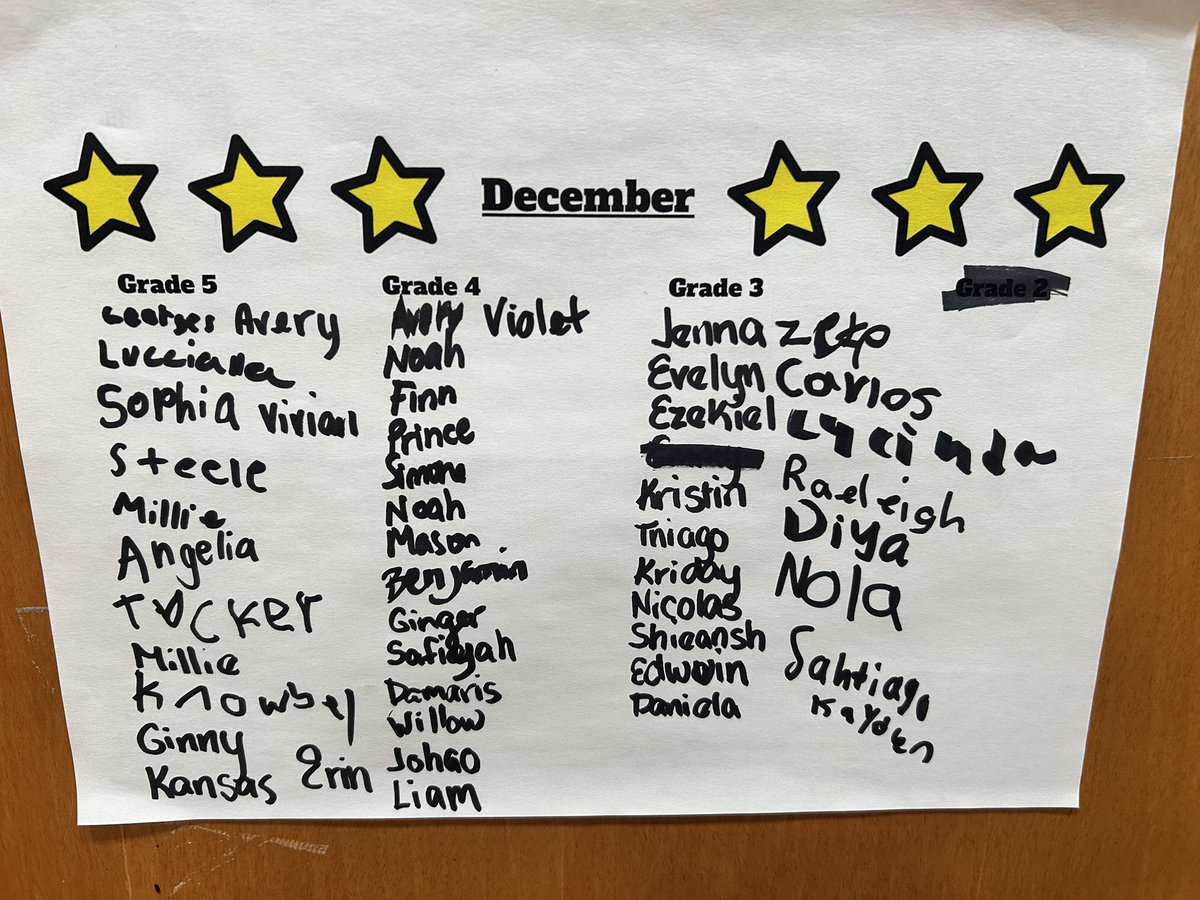 December
Grade 5
Avery
Lucciana
Sophia Vivian
Steele
Millie
Angelia
Tucker
Millie
Knowbel
Ginny
Kansas Erin
Grade 4
Avery Violet
Noah
Finn
Prince
Simone
Noah
Mason
Benjamin
Ginger
Safiyah
Damaris
Willow
Johao
Liam
Grade 3
Jenna
Evelyn
Ezekiel
Kristin
Thiago
Kriday
Nicolas
Edwin
Daniela
Grade 2
Carlos
Lycinda
Raeleigh
Diya
Nola
Sahtiago
Kayden